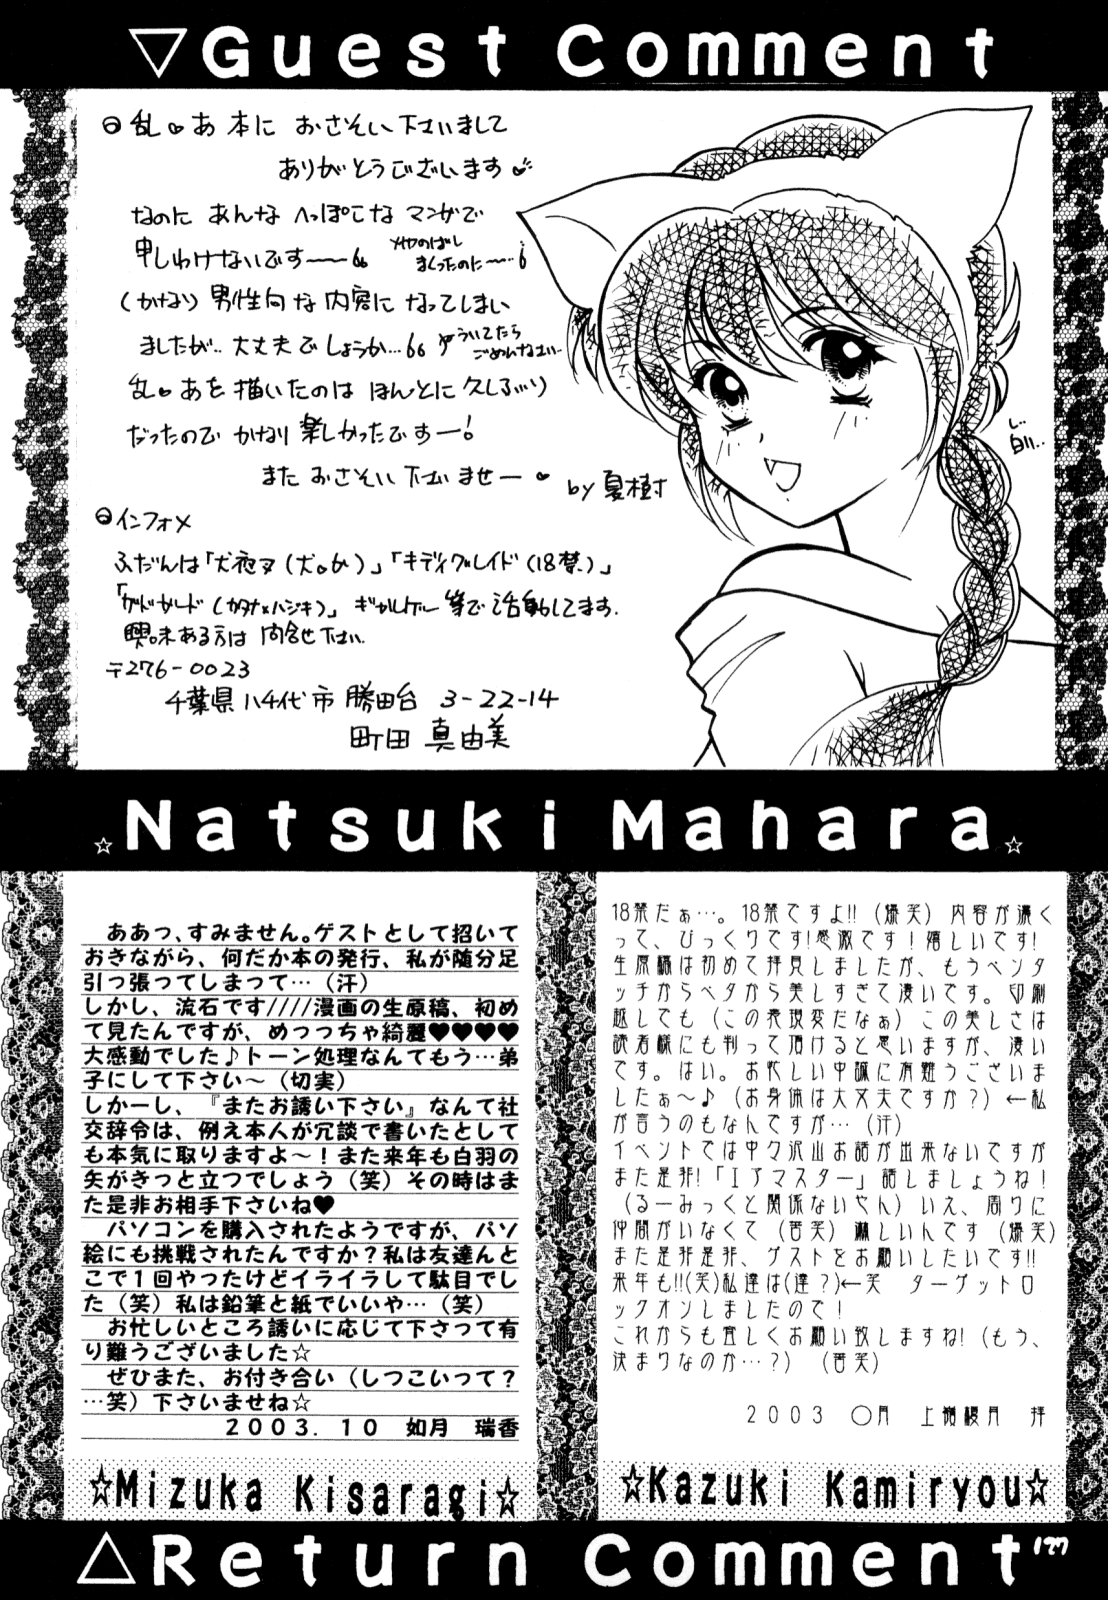 ▽Guest Comment
乱♥あ 本に おさそい下さいまして
ありがとうございます♥
なのに あんな へっぽこな マンガで
申しわけないです〜〜
〆切のばし
まくったのに〜…
(かなり) 男性向な内容に なってしまい
ましたが.. 大丈夫でしょうか…
ういてたら
ごめんなさい…
乱♥あを 描いたのは ほんとに 久しぶり
だったので かなり 楽しかったですー!
また おさそい 下さいませー♥
by 夏樹
し..
白い…
インフォメ
ふだんは「犬夜叉(犬♥か)」「キディグレイド(18禁)」
ギャルゲー 等で 活動してます.
興味ある方は 問合せ下さい.
〒276-0023
千葉県八千代市 勝田台 3-22-14
町田 真由美
☆Natsuki Mahara☆
ああっ、すみません。ゲストとして招いて
おきながら、何だか本の発行、私が随分足
引っ張ってしまって…(汗)
しかし、流石です////漫画の生原稿、初め
て見たんですが、めっつちゃ綺麗♥♥♥♥
大感動でした♪トーン処理なんてもう…弟
子にして下さい〜(切実)
しかーし、『またお誘い下さい』なんて社
交辞令は、例え本人が冗談で書いたとして
も本気に取りますよ〜!また来年も白羽の
矢がきっと立つでしょう(笑)その時はま
た是非お相手下さいね♥
パソコンを購入されたようですが、パソ
絵にも挑戦されたんですか?私は友達んと
こで1回やったけどイライラして駄目でし
た(笑)私は鉛筆と紙でいいや…(笑)
お忙しいところ誘いに応じて下さって有
り難うございました☆
ぜひまた、お付き合い(しつこいって?
…笑)下さいませね☆
2003.10 如月 瑞香
☆Mizuka Kisaragi☆
18禁だぁ…。18禁ですよ!!(爆笑)内容が濃く
って、びっくりです!感激です!嬉しいです!
生原稿は初めて拝見しましたが、もうペンタ
ッチからベタから美しすぎて凄いです。印刷
越しても(この表現変だなぁ)この美しさは
読者様にも判って頂けると思いますが、凄い
です。はい。お忙しい中誠に有難うございま
したぁ〜♪(お身体は大丈夫ですか?)←私
が言うのもなんですが…(汗)
イベントでは中々沢山お話が出来ないですが
また是非!「エアマスター」話しましょうね!
(るーみっくと関係ないやん)いえ、周りに
仲間がいなくて(苦笑)淋しいんです(爆笑)
また是非是非、ゲストをお願いしたいです!!
来年も!!(笑)私達は(達?)←笑 ターゲットロ
ックオンしましたので!
これからも宜しくお願い致しますね!(もう、
決まりなのか…?)(苦笑)
2003 ○月 上嶺優月 拝
☆Kazuki Kamiryou☆
△Return Comment
127